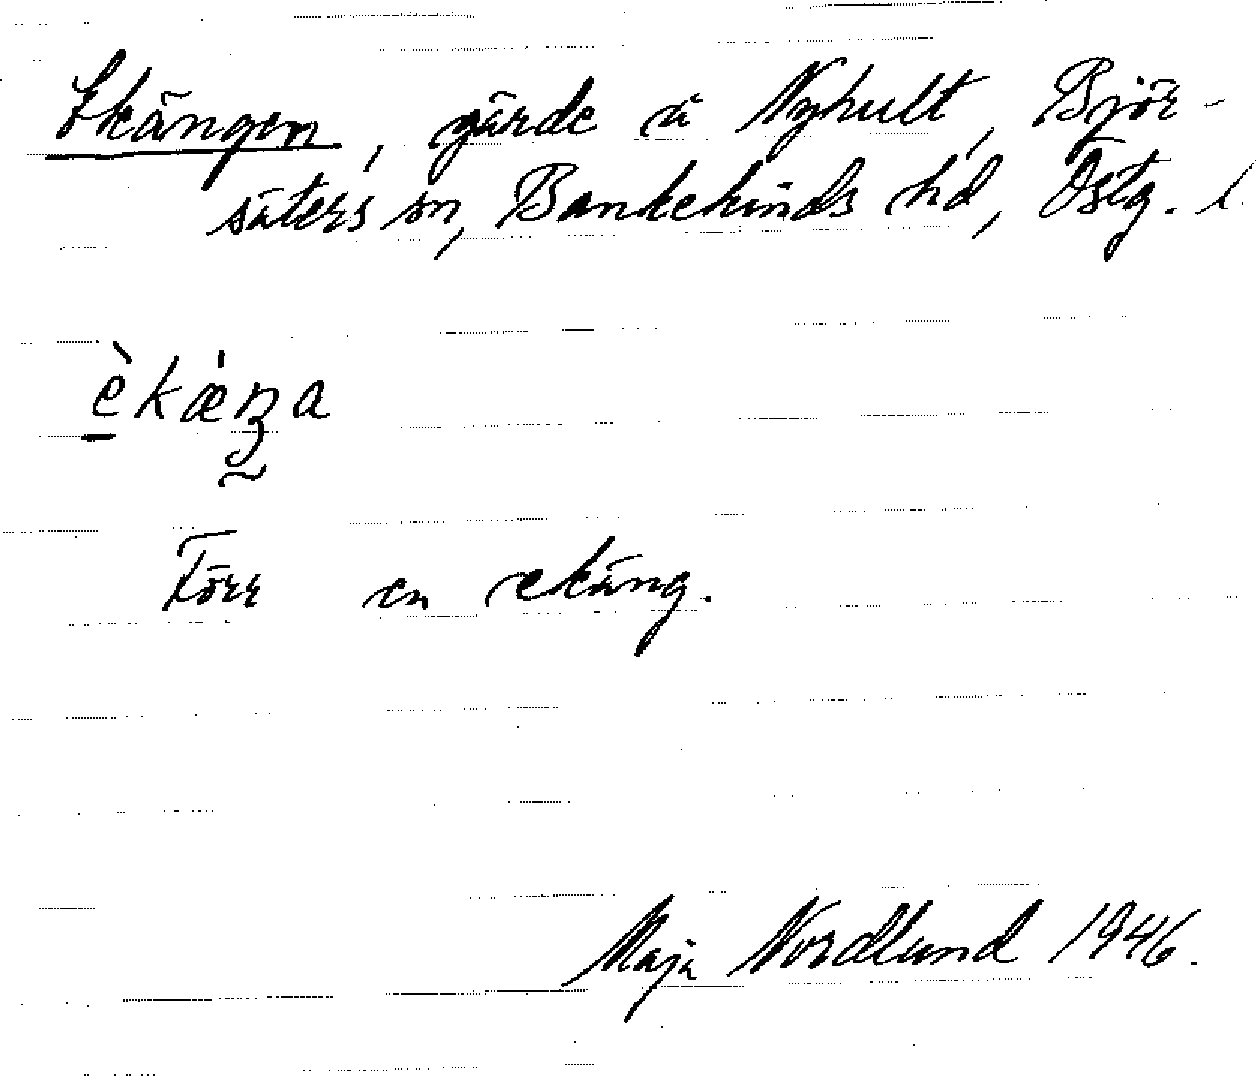 Ekängen, gärde å Nyhult, Björ-
säters sn, Bankekinds hd, Östg. l.
Förr en ekäng.
Maja Nordlund 1946.